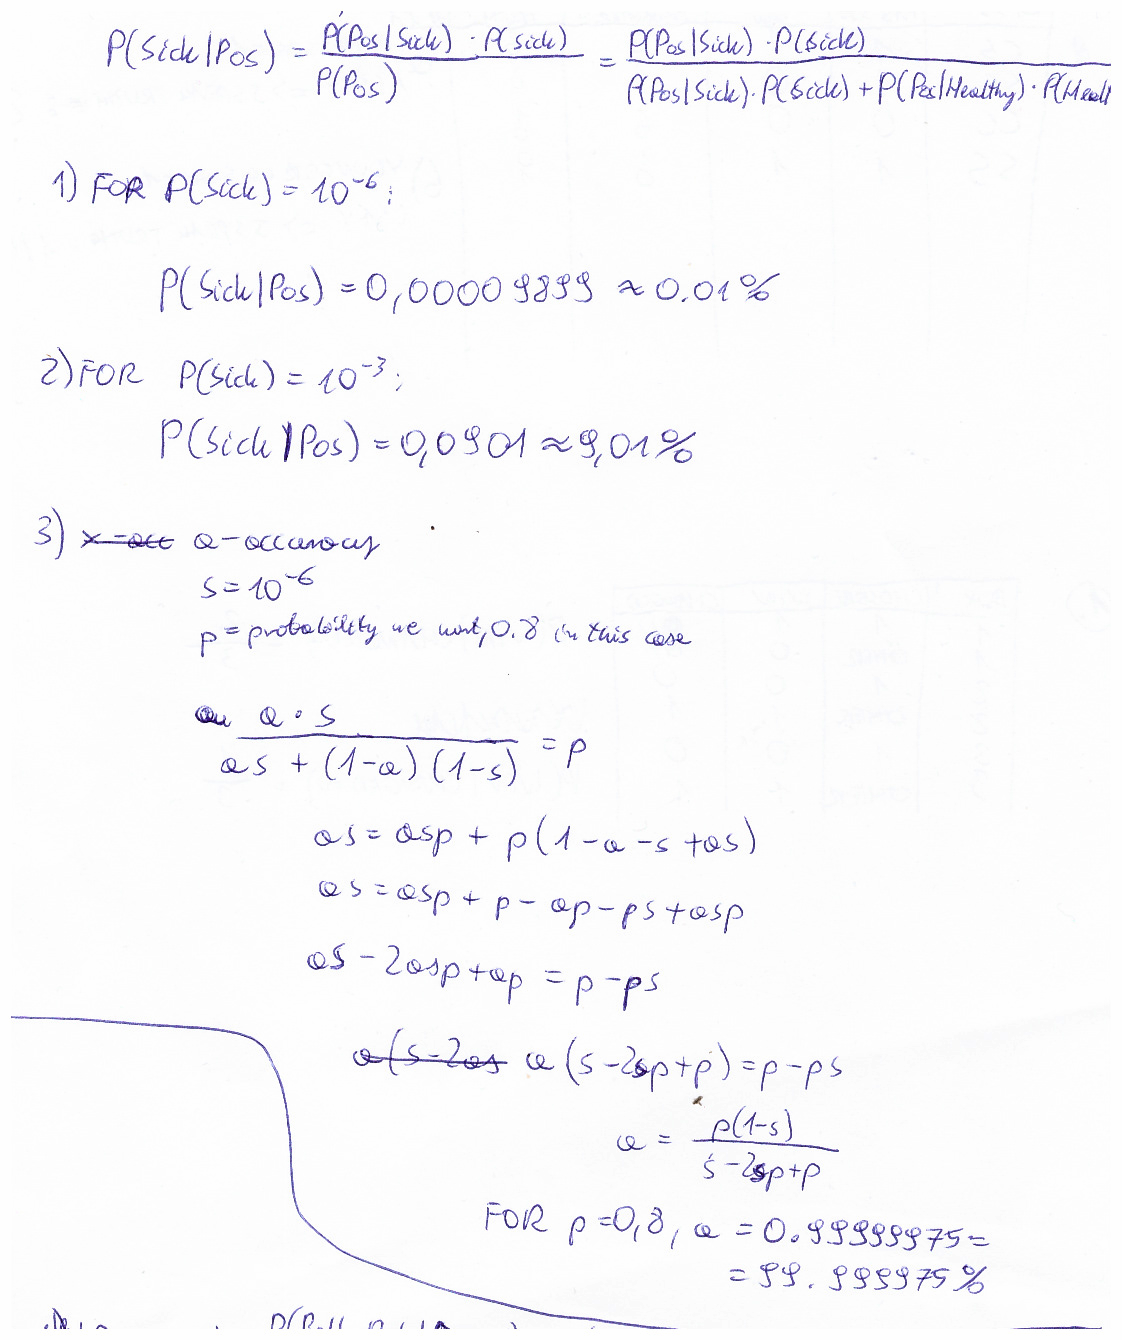 P(Sick|Pos) = P(Pos|Sick) · P(Sick) / P(Pos) = P(Pos|Sick) · P(Sick) / P(Pos|Sick) · P(Sick) + P(Pos|Healthy) · P(Healt
1) FOR P(Sick) = 10⁻⁶:
P(Sick|Pos) = 0,00009899 ≈ 0.01%
2) FOR P(Sick) = 10⁻³:
P(Sick|Pos) = 0,0901 ≈ 9,01%
3) x-acc a-accuracy
s = 10⁻⁶
p = probability we want, 0.8 in this case
a · s / as + (1-a)(1-s) = p
as = asp + p(1-a-s+as)
as = asp + p - ap - ps + asp
as - 2asp + ap = p - ps
a(s-2as a(s-2sp+p) = p-ps
a = p(1-s) / s-2sp+p
FOR p=0,8, a = 0.99999975 =
= 99.999975%